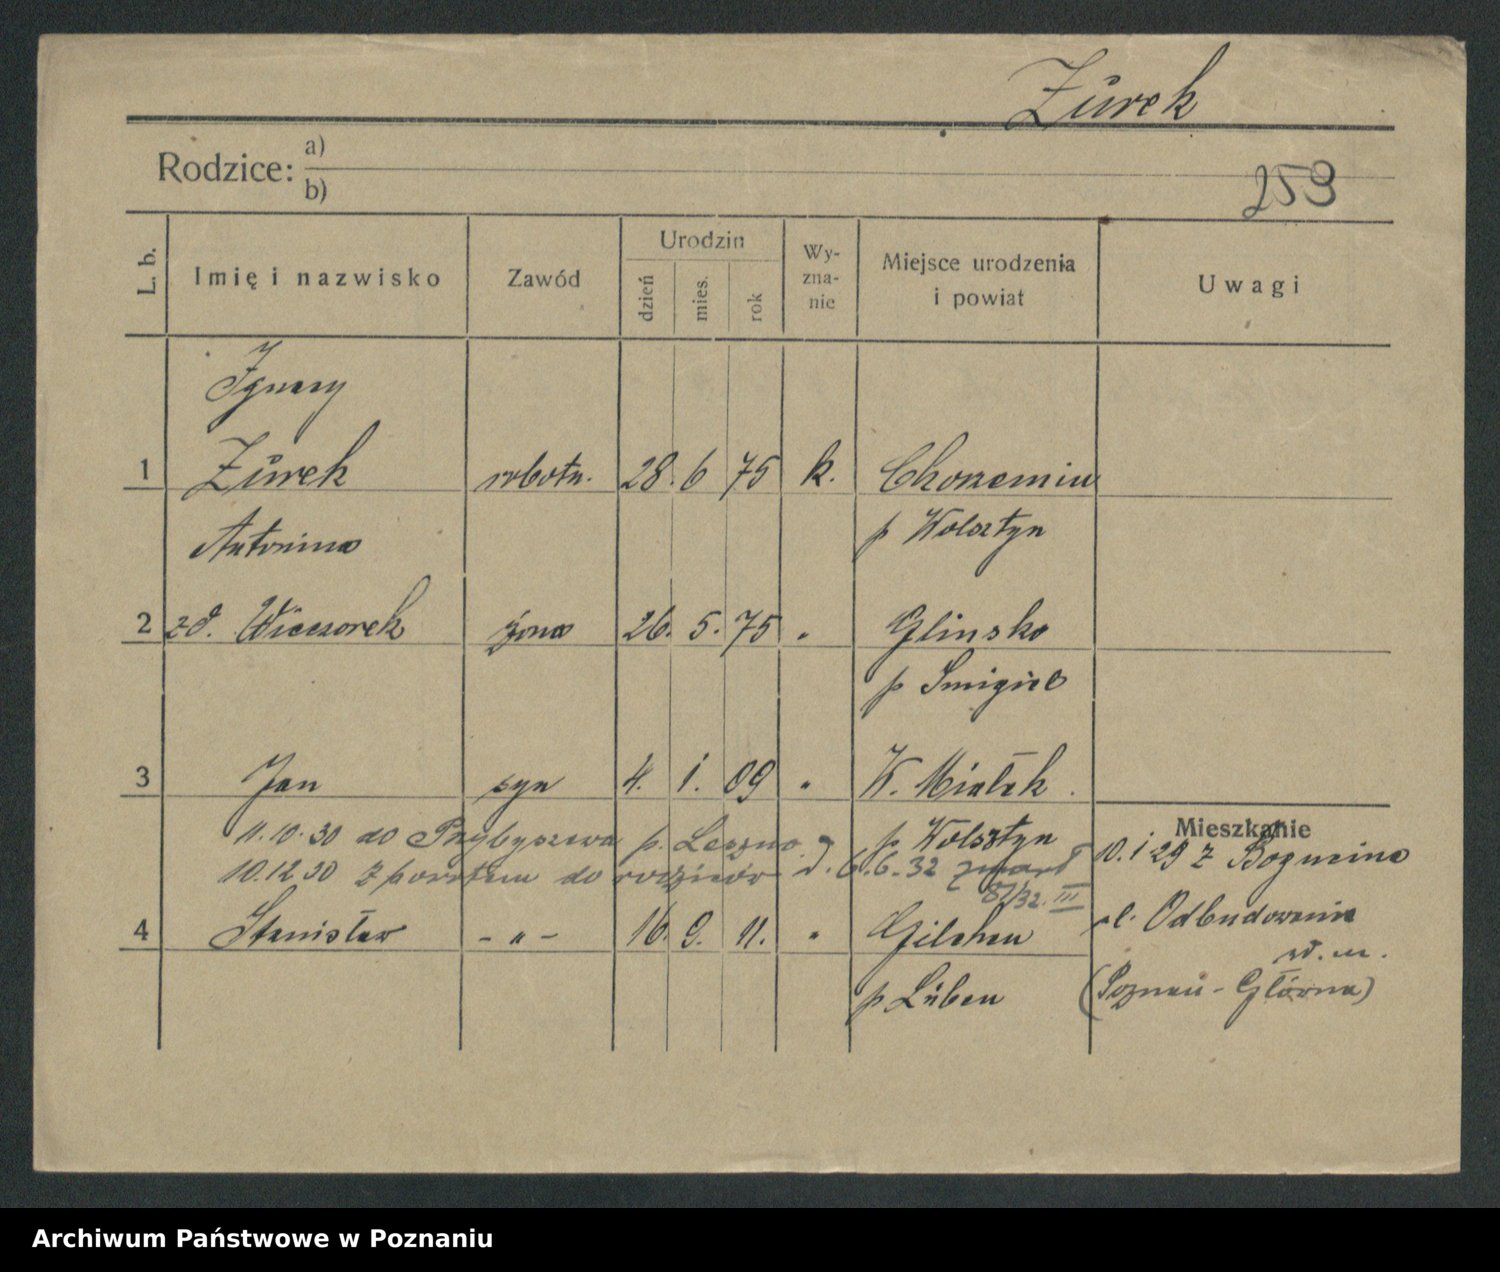 Żurek
Rodzice: a)
b)
253
L. b.
Imię i nazwisko
Zawód
Urodzin
dzień
mies.
rok
Wy-
zna-
nie
Miejsce urodzenia
i powiat
Uwagi
Ignacy
1 Żurek robotn. 28. 6 75 k. Chorzemin
Antonina p Wolsztyn
2 zd. Wieczorek żona 26. 5. 75 " Glinsko
p Smigiel
3 Jan syn 4. 1. 09 " W. Białsk
11.10.30 do Przybyszewa p. Leszno p Wolsztyn
Mieszkanie
10.12.30 z powrotem do rodziców J. 6.6.32 zmarł
87/32. III
10.1 29 z
4 Stanisław - " - 16. 9. 11. " Gilchen
p Lüben
ul. Odbudowania
w. m.
(Poznań - Główna)
Archiwum Państwowe w Poznaniu